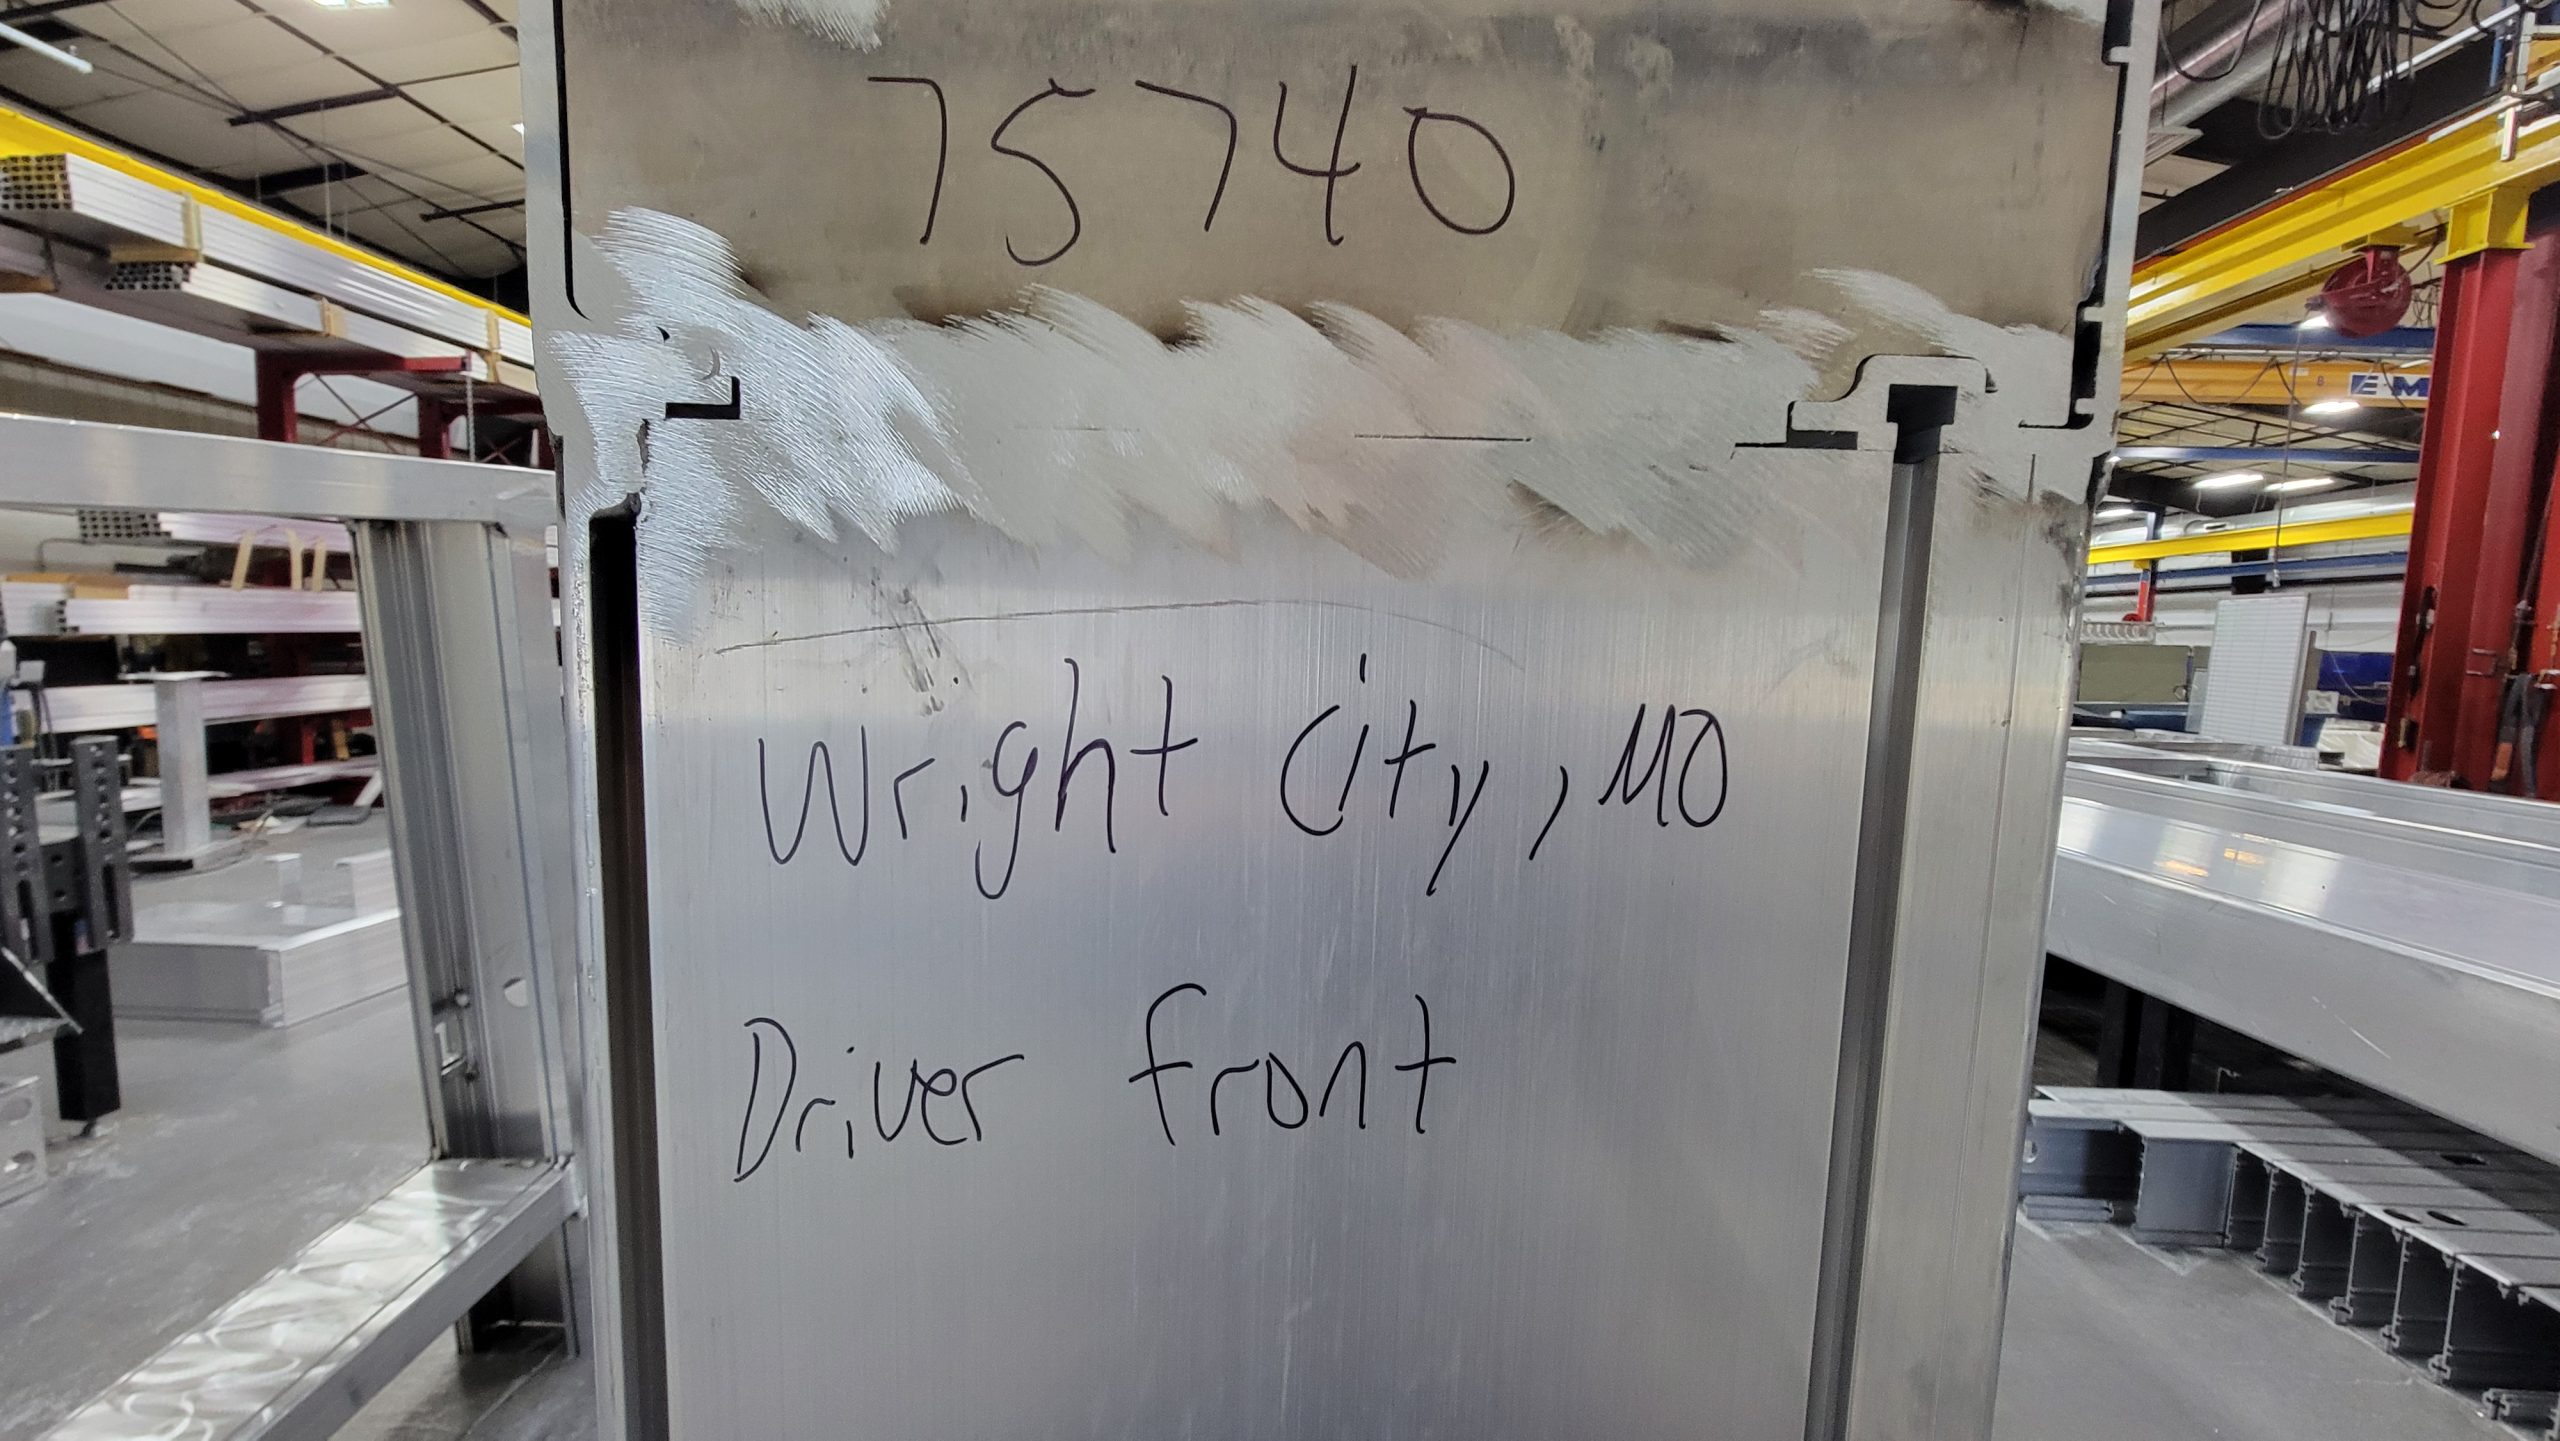 75740
Wright City, MO
Driver front